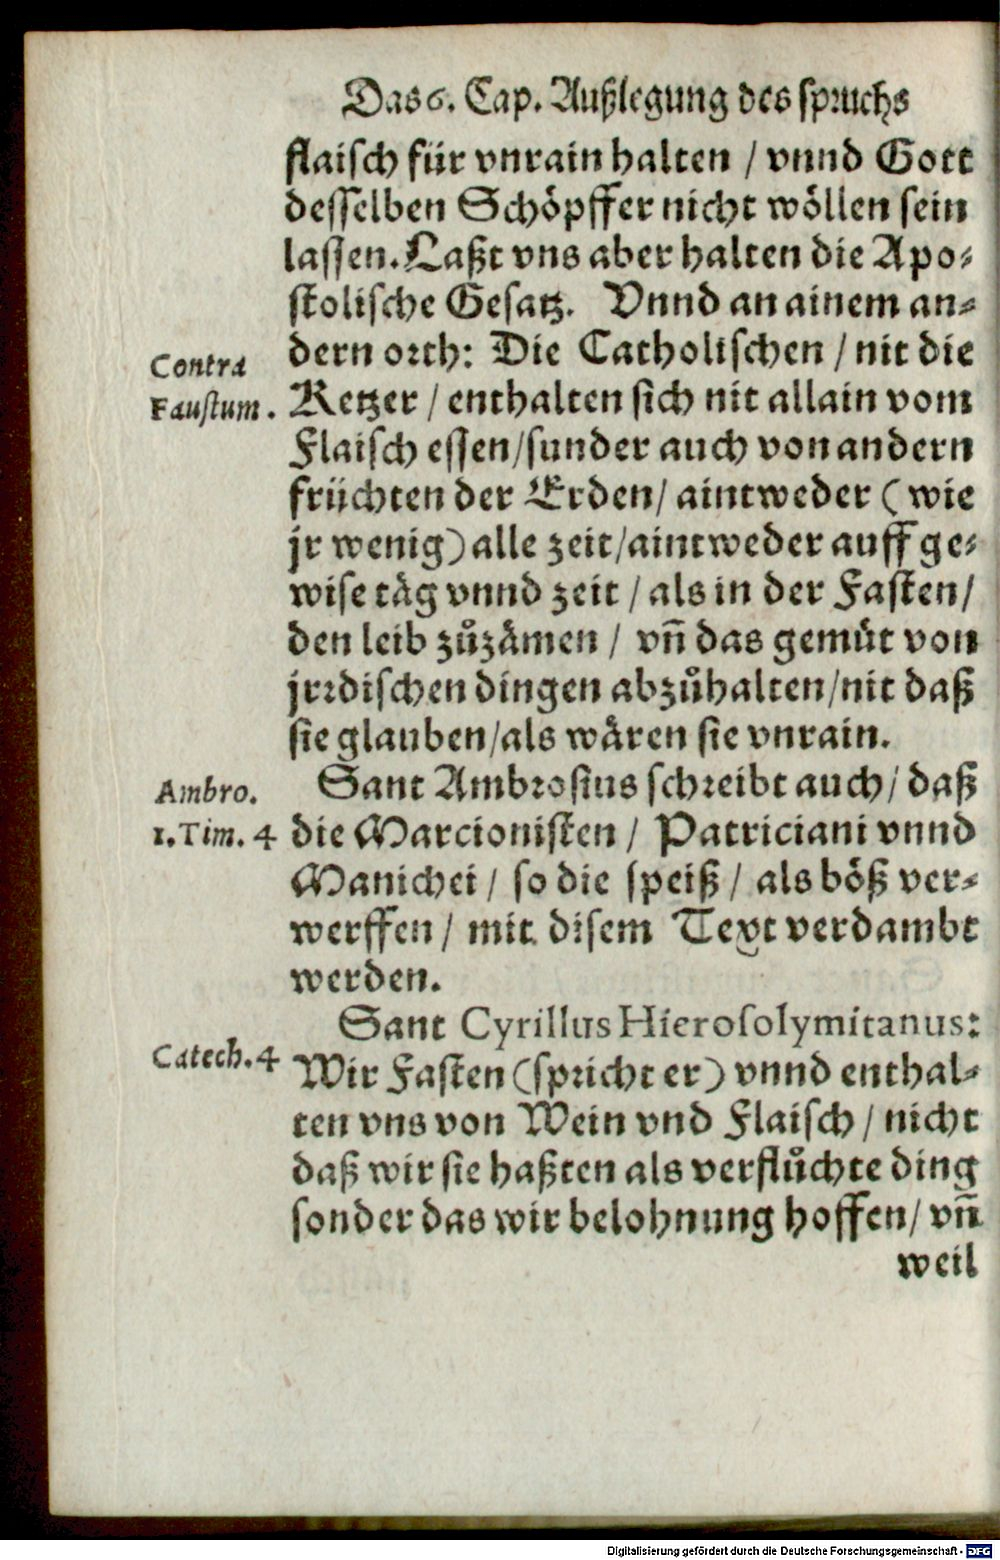 Das 6. Cap. Außlegung des spruchs
flaisch für vnrain halten / vnnd Gott
desselben Schöpffer nicht wöllen sein
lassen. Laßt vns aber halten die Apo-
stolische Gesatz. Vnnd an ainem an-
dern orth: Die Catholischen / nit die
Contra
Faustum.
Ketzer / enthalten sich nit allain vom
Flaisch essen/sunder auch von andern
früchten der Erden/ aintweder ( wie
jr wenig) alle zeit/aintweder auff ge-
wise täg vnnd zeit / als in der Fasten/
den leib zůzämen / vñ das gemüt von
jrrdischen dingen abzůhalten/nit daß
sie glauben/als wären sie vnrain.
Ambro.
1. Tim. 4
Sant Ambrosius schreibt auch/ daß
die Marcionisten / Patriciani vnnd
Manichei / so die speiß / als böß ver-
werffen / mit disem Text verdambt
werden.
Sant Cyrillus Hierosolymitanus:
Catech. 4
Wir Fasten (spricht er) vnnd enthal-
ten vns von Wein vnd Flaisch / nicht
daß wir sie haßten als verflůchte ding
sonder das wir belohnung hoffen/ vñ
weil
Digitalisierung gefördert durch die Deutsche Forschungsgemeinschaft - DFG